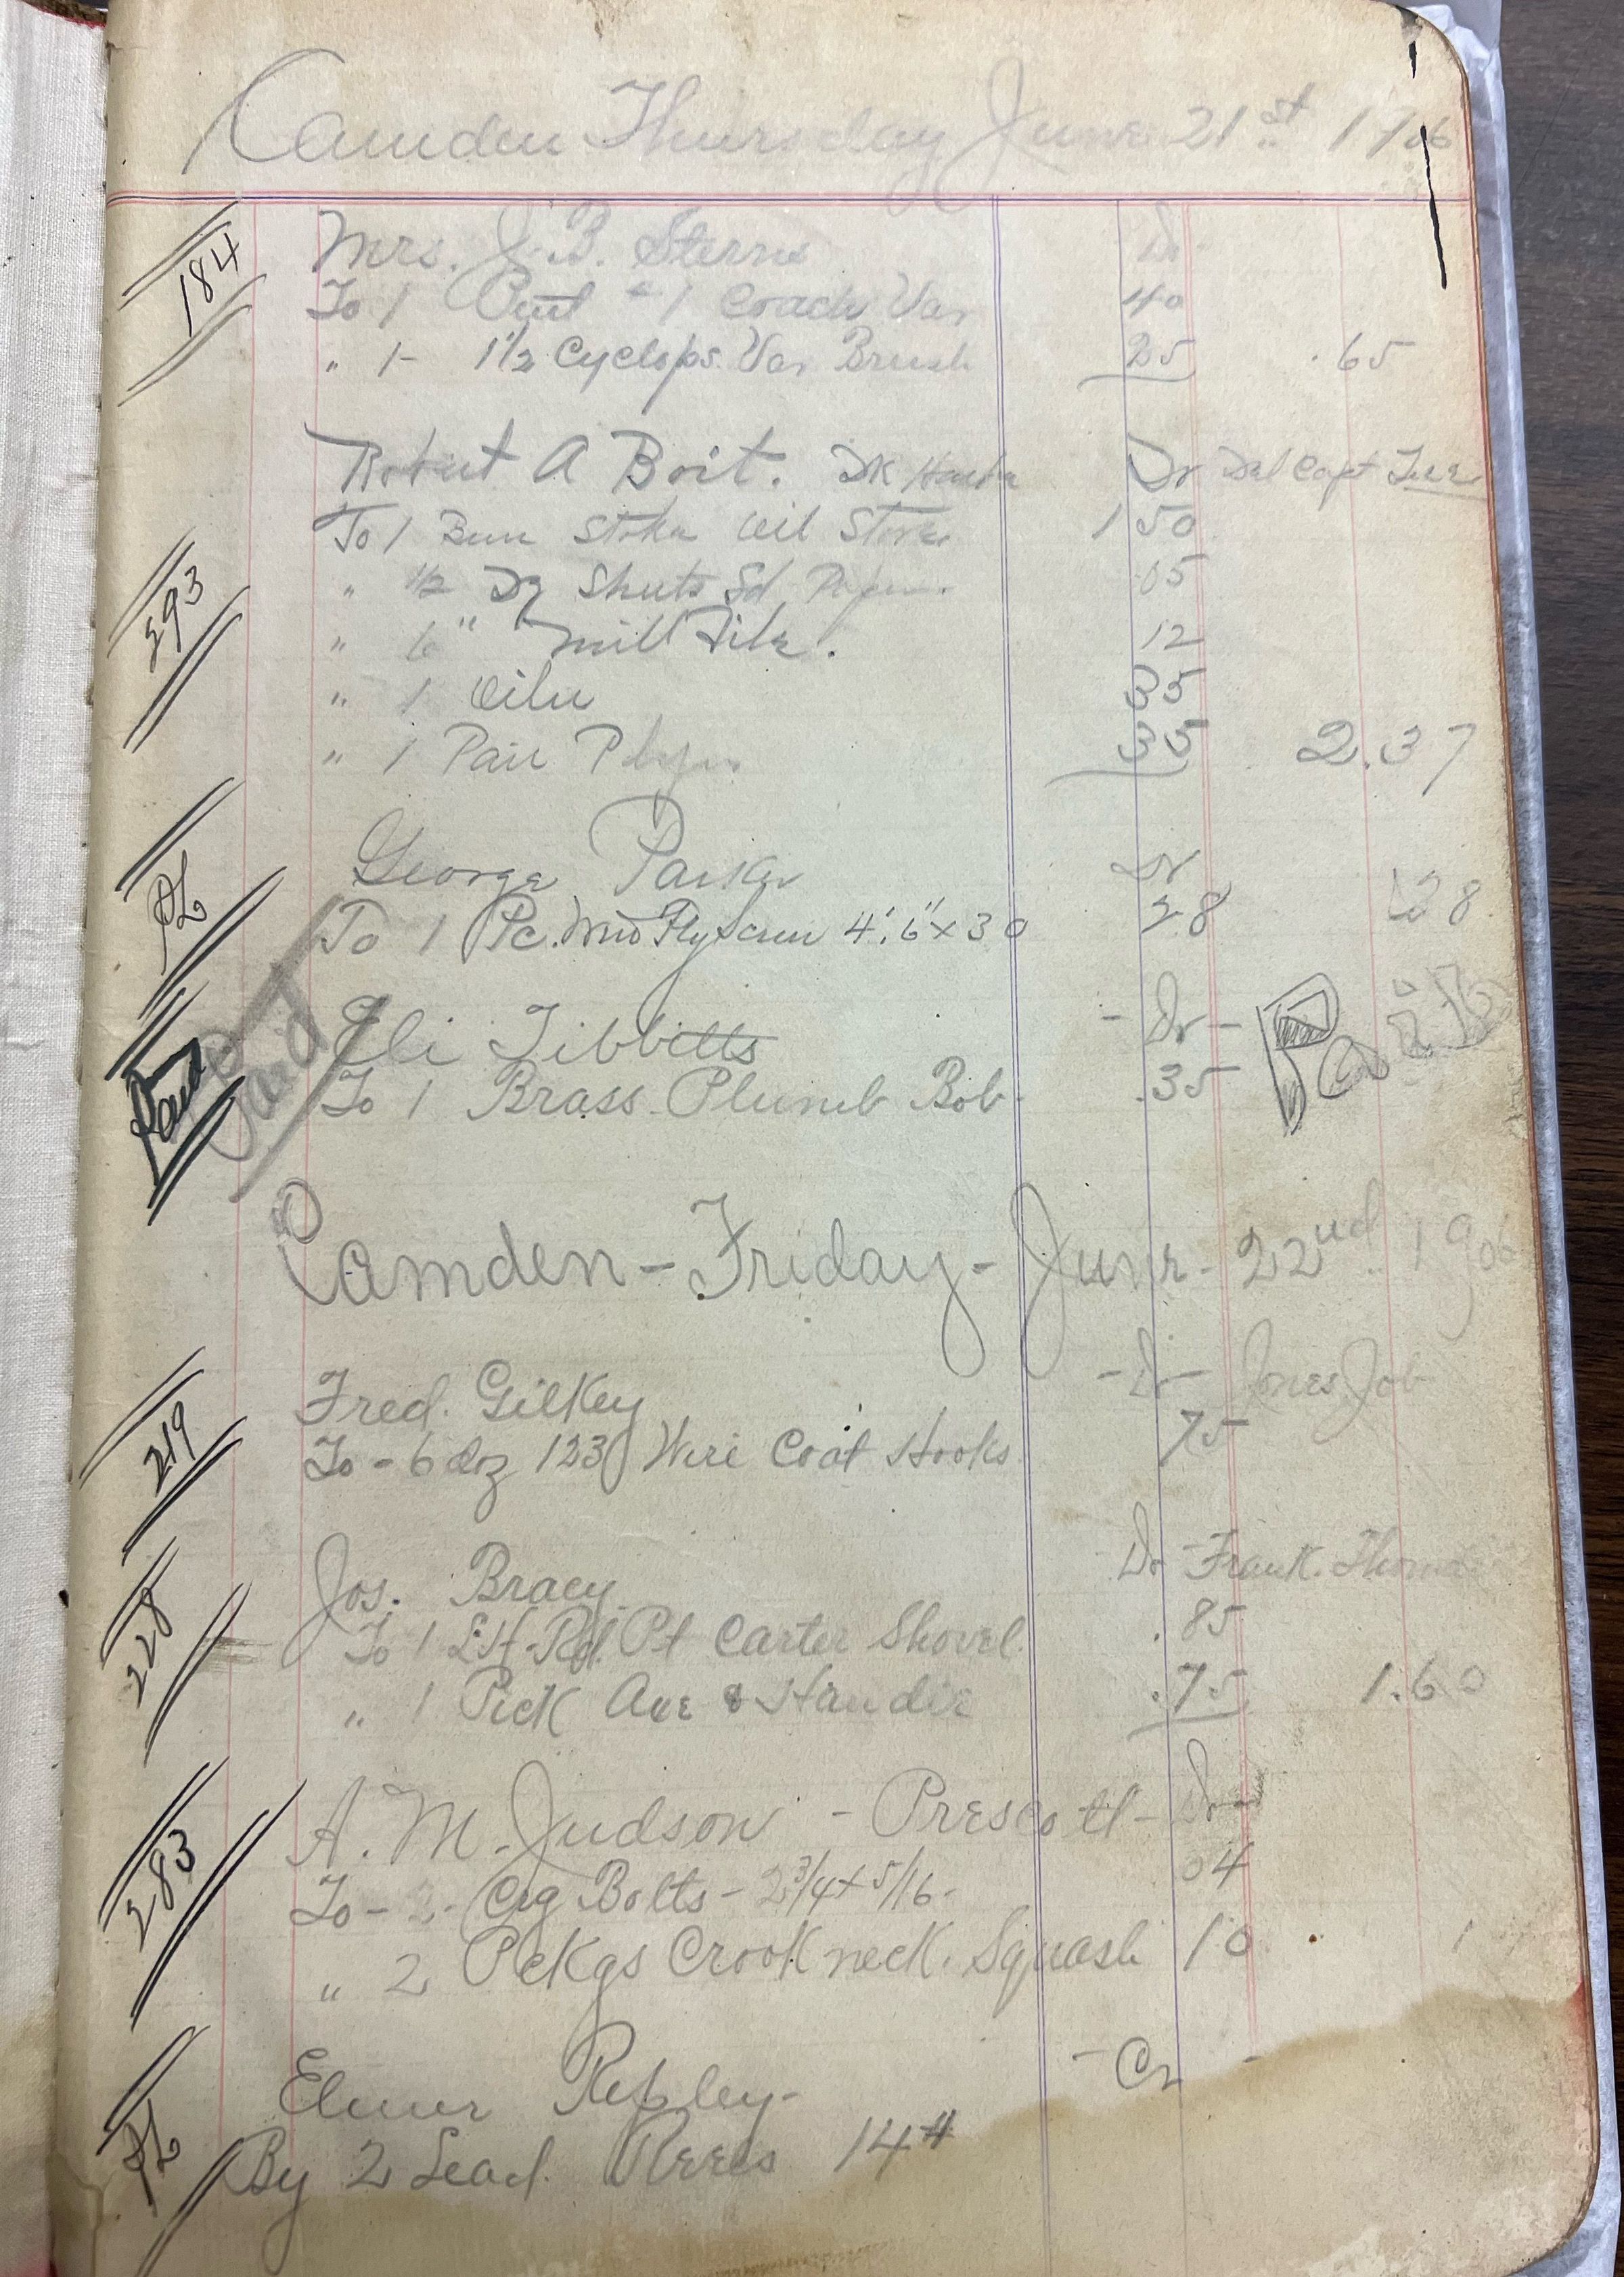 Camden Thursday June 21st 1906
184
Mrs. J. B. Sterns Dr
To 1 Pint #1 Coach Var 40
" 1- 1 1/2 Cyclops Var Brush 25 .65
Robert A Boit. Dr Del Capt
To 1 Oil Stone 1 50
293
" 1/2 Dz Shuts Sd Paper 05
" 6" Mill File. 12
" 1 Oiler 35
" 1 Pair Plyers 35 2.37
George Parker Dr
PL
To 1 Pc. Wire Fly Screen 4'.6" x 30 28 28
Paid
Paid
Eli Tibbetts - Dr - Paid
To 1 Brass Plumb Bob .35
Camden - Friday - June - 22nd 1906
219
Fred. Gilkey - Dr - Jones Job
To - 6 doz 123 Wire Coat Hooks 75
228
Jos. Bracy Dr - Frank. Thomas
To 1 LH Rd. Pt Carter Shovel .85
" 1 Pick Axe & Handle .75 1.60
283
A. M. Judson - Prescott - Dr
To - 2 - Crg Bolts - 2 3/4 x 5/16 - 04
" 2 Pckgs Crook neck. Squash 10
PL
Elmer Ripley - - Cr -
By 2 Lead Reels 14#